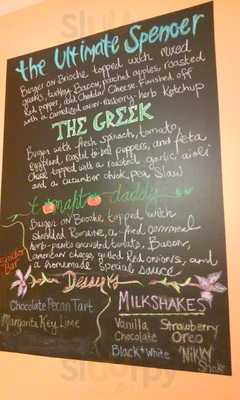 the Ultimate Spencer
Burger on Brioche topped with mixed
greens, turkey, Bacon, poached apples, roasted
Red pepper, and Cheddar Cheese. Finished off
with a caramelized onion-raspberry-herb Ketchup
THE GREEK
Burger with fresh spinach, tomato,
Eggplant, roasted red peppers, and feta
Cheese topped with a roasted garlic aioli
and a cucumber chick pea Slaw
daddy
Burger on Brioche, topped with
shredded Romaine, a fried cornmeal
herb-panko encrusted tomato, Bacon,
american cheese, grilled Red onions, and
a homemade Special sauce
Bar
Desserts
Chocolate Pecan Tart
Margarita Key Lime
MILKSHAKES
Vanilla Strawberry
Chocolate Oreo
Black + White Nikky
Shake